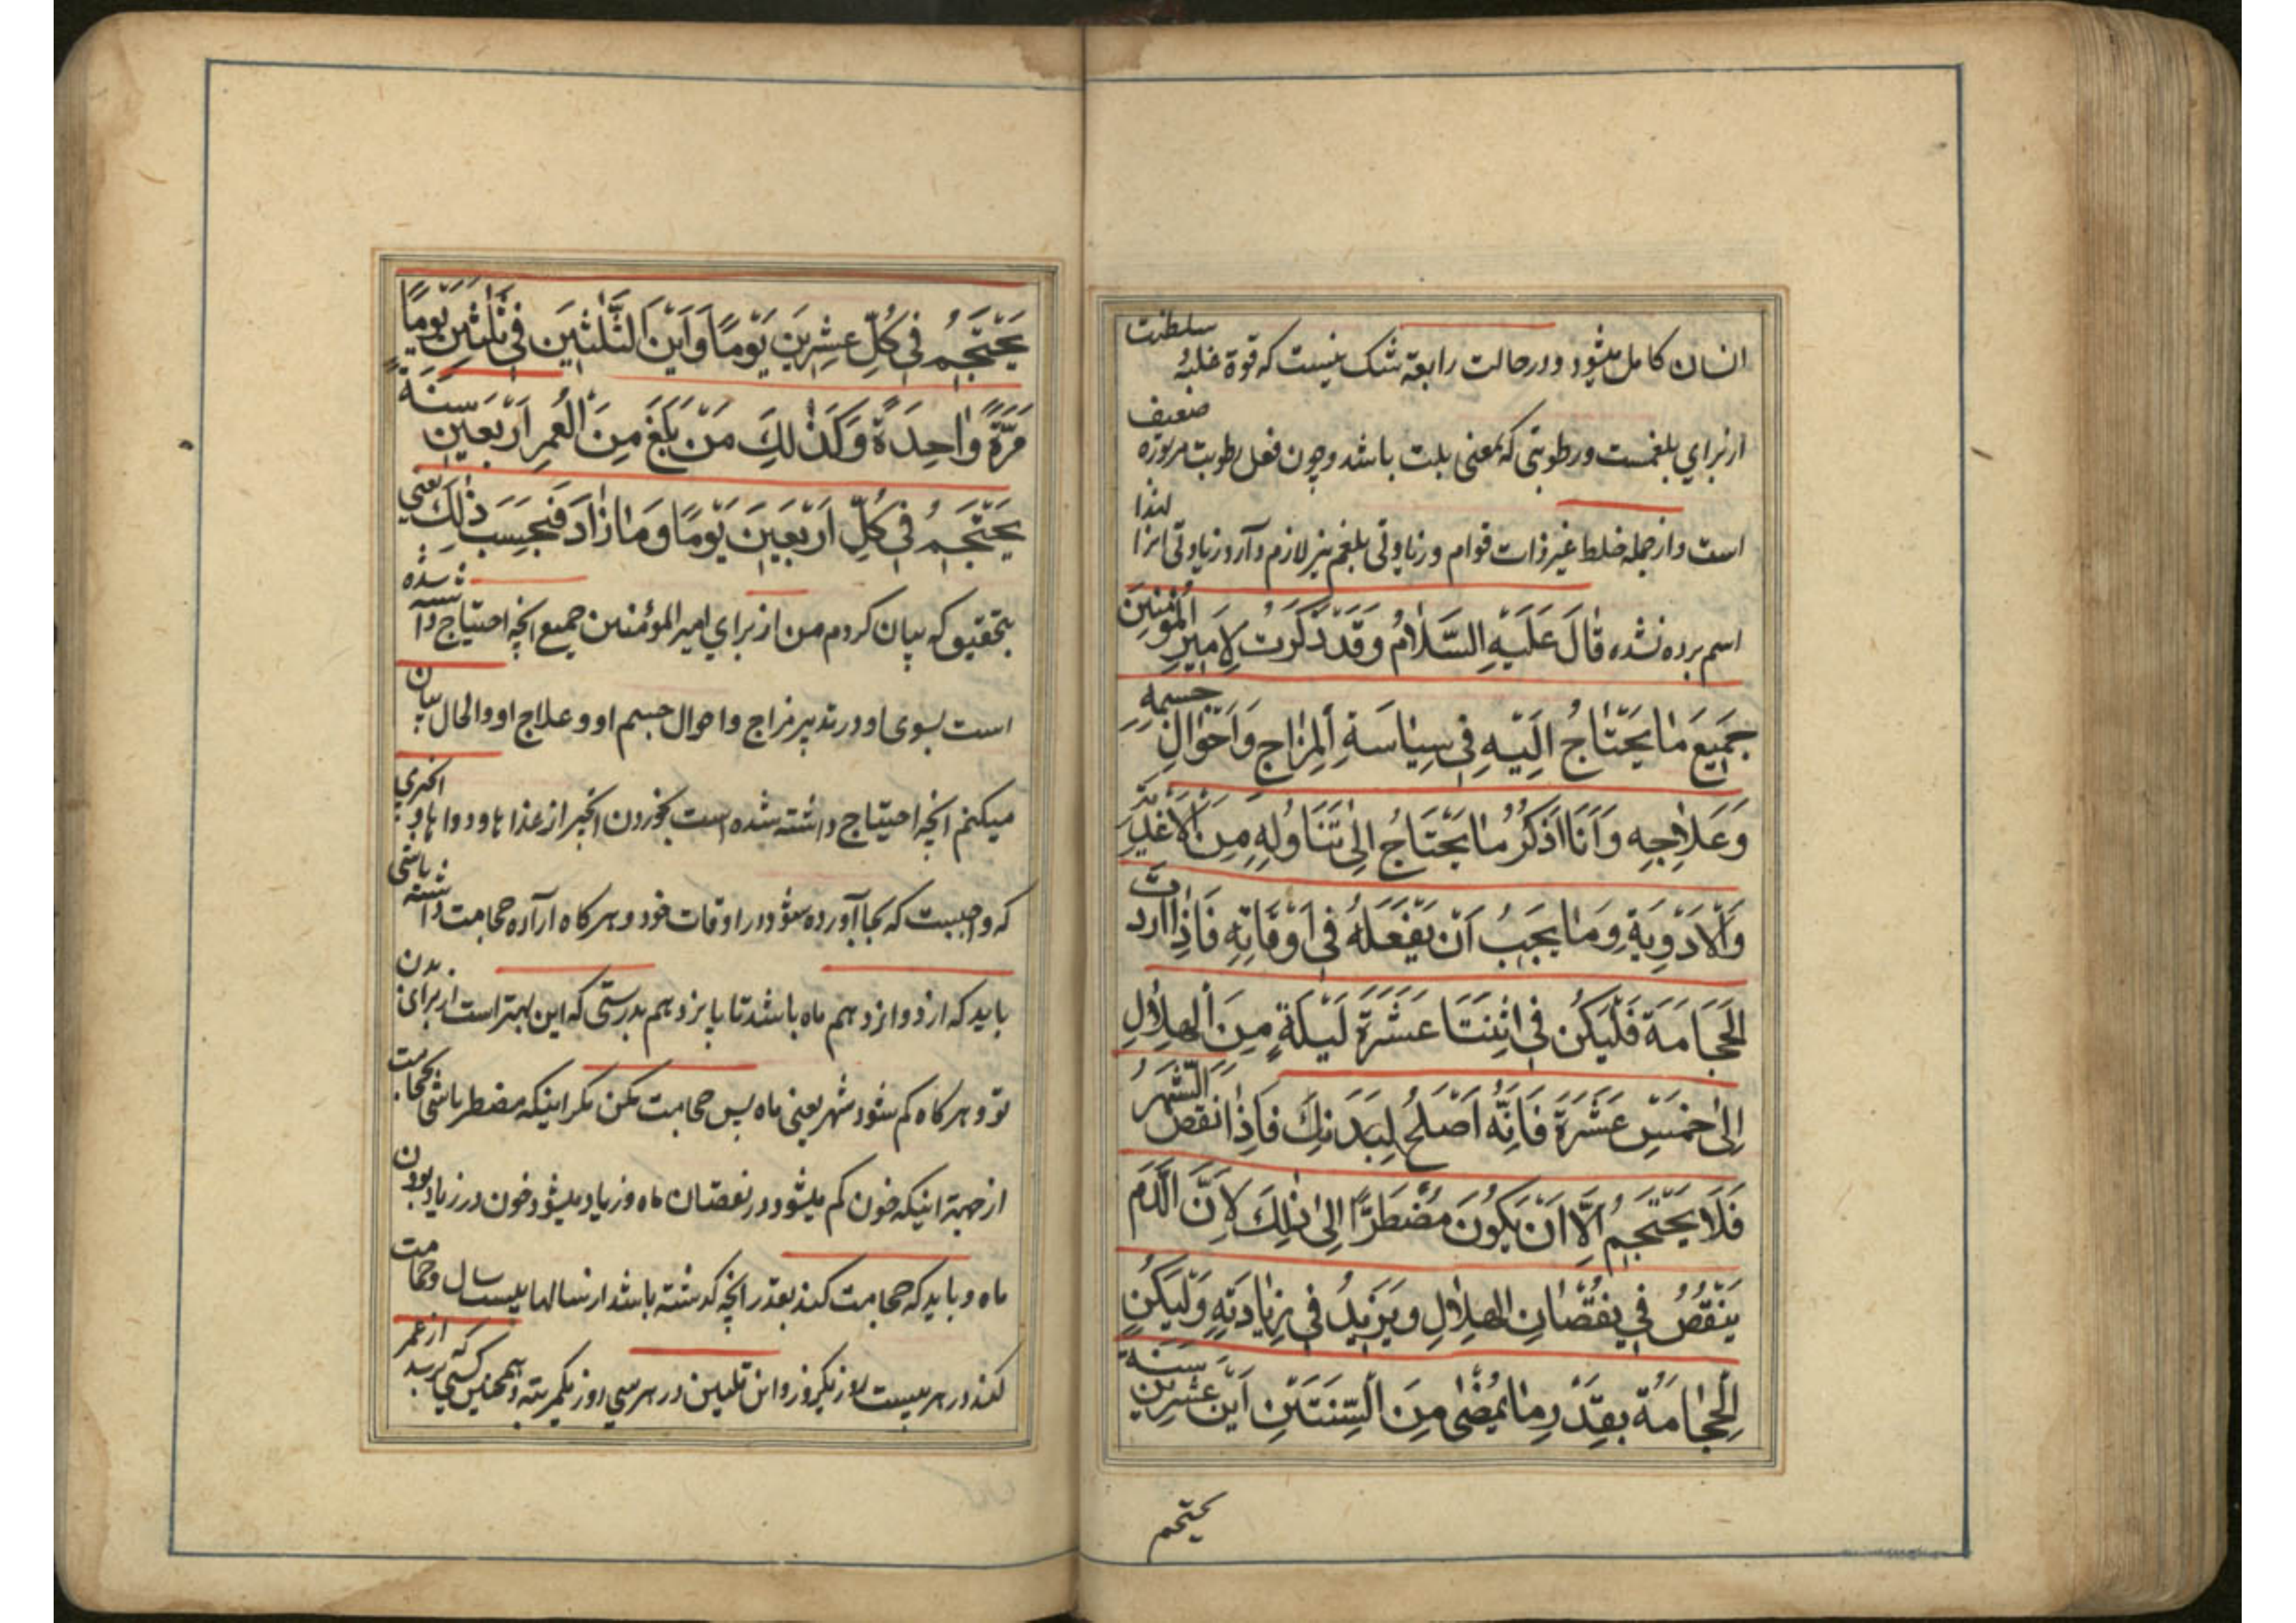 انسان کامل میشود ودر حالت رابعة شک نیست که قوة غلبهٔ سلطنت
از برای بلغمست ورطوبتی که بمعنی بلت باشد وچون فعل رطوبت مزبوره ضعیف
است واز جمله خلط غیر ذات قوام وزیادتی بلغم نیز لازم دآرد زیادتی انرا لهذا
اسم برده نشده قَالَ عَلَيْهِ السَّلَامُ وَقَدْ ذَكَرْتُ لِأَمِيرِ الْمُؤْمِنِينَ
جَمِيعَ مَا يَحْتَاجُ اِلَيْهِ فِي سِيَاسَةِ الْمِزَاجِ وَاَحْوَالِ جِسْمِهِ
وَعَلَاجِهِ وَاَنَا اَذْكُرُ مَا يَحْتَاجُ اِلَى تَنَاوُلِهِ مِنَ الْاَغْذِيَةِ
وَالْاَدْوِيَةِ وَمَا يَجِبُ اَنْ يَفْعَلَهُ فِي اَوْقَاتِهِ فَاِذَا اَرَدْتَ
الْحَجَامَةَ فَلْيَكُنْ فِي اثْنَتَا عَشَرَةَ لَيْلَةٍ مِنَ الْهِلَالِ
اِلَى خَمْسَ عَشْرَةَ فَاِنَّهُ اَصْلَحُ لِبَدَنِكَ فَاِذَا نَقَصَ الشَّهْرُ
فَلَا يَحْتَجِمُ اِلَّا اَنْ يَكُونَ مُضْطَرًّا اِلَى ذٰلِكَ لِاَنَّ الدَّمَ
يَنْقُصُ فِي نُقْصَانِ الْهِلَالِ وَيَزِيدُ فِي زِيَادَتِهِ وَلْيَكُنْ
الْحِجَامَةُ بِقَدْرِ مَا يَمْضِي مِنَ السِّنَتَيْنِ اَبْنُ عِشْرِينَ سَنَةً
یحتجم
يَحْتَجِمُ فِي كُلِّ عِشْرِينَ يَوْمًا وَاَبْنُ الثَّلٰثِينَ فِي ثَلٰثِينَ يَوْمًا
مَرَّةً وَاحِدَةً وَكَذٰلِكَ مَنْ بَلَغَ مِنَ الْعُمْرِ اَرْبَعِينَ سَنَةً
يَحْتَجِمُ فِي كُلِّ اَرْبَعِينَ يَوْمًا وَمَا زَادَ فَبِحَسَبِ ذٰلِكَ یعنی
بتحقیق که بیان کردم من از برای امیر المؤمنین جمیع انچه احتیاج داشته شده
است بسوی او در تدبیر مزاج واحوال جسم او وعلاج او والحال بیان
میکنم انچه احتیاج داشته شده است بخوردن از غذا ها ودوا ها
که واجبست که بجا آورده شود در اوقات خود وهر کاه اراده حجامت داشته باشی
باید که از دوازدهم ماه باشد تا پانزدهم بدرستی که این بهتر است از برای بدن
تو وهر کاه کم شود شهر یعنی ماه پس حجامت مکن مکر اینکه مضطر باشی بحجامت
از جهة اینکه خون کم میشود در نقصان ماه وزیاد میشود خون در زیاد بودن
ماه وباید که حجامت کند بقدر انچه کذشته باشد از سالها بیست سال وحجامت
کند در هر بیست روز یکروز وابن ثلثین در هر سی روز یکمرتبه وهمچنین کسی که برسد از عمر